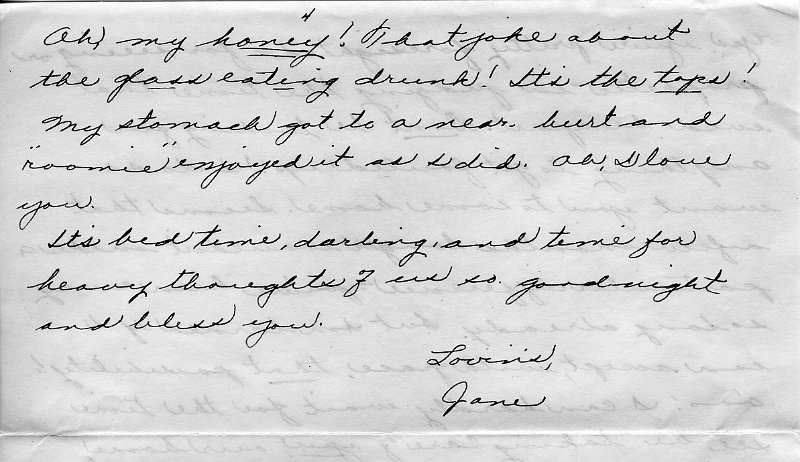 Oh, my honey! That joke about
the glass eating drunk! It's the tops!
My stomach got to a near burst and
"roomie" enjoyed it as I did. Oh, I love
you.
It's bed time, darling, and time for
heavy thoughts of us so good-night
and bless you.
Lovin's,
Jane